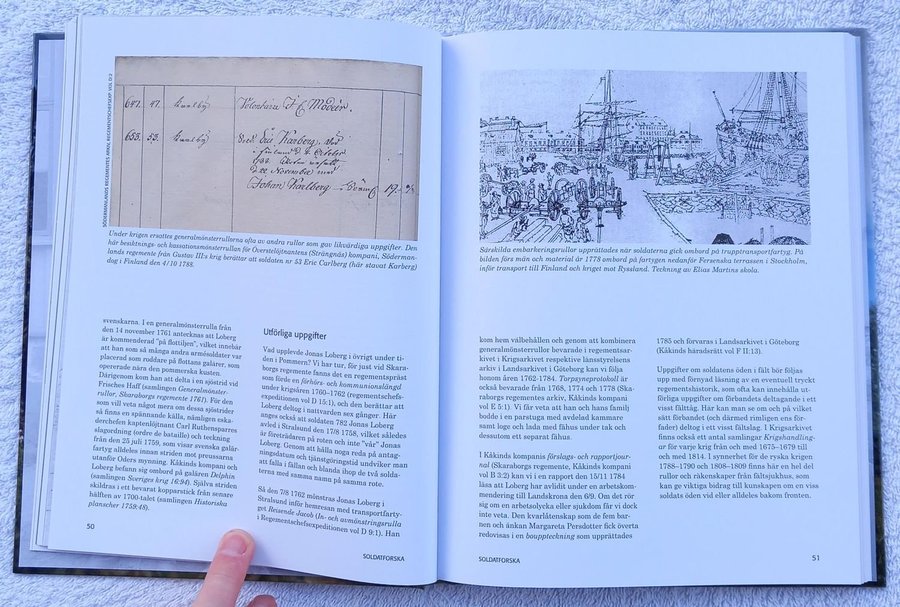 SÖDERMANLANDS REGEMENTES ARKIV, REGEMENTSCHEFSEXP. VOL D:2
647. 47.
Volontairn
Modéer.
653. 53.
Eric Karberg, död
i Finland d. 4 October
1788.
d. 22 Novembr
Johan Karlberg
19.
Under krigen ersattes generalmönsterrullorna ofta av andra rullor som gav likvärdiga uppgifter. Den
här besiktnings- och kassationsmönsterrullan för Överstelöjtnantens (Strängnäs) kompani, Söderman-
lands regemente från Gustav III:s krig berättar att soldaten nr 53 Eric Carlberg (här stavat Karberg)
dog i Finland den 4/10 1788.
svenskarna. I en generalmönsterrulla från
den 14 november 1761 antecknas att Loberg
är kommenderad "på flottiljen", vilket innebär
att han som så många andra armésoldater var
placerad som roddare på flottans galärer, som
opererade nära den pommerska kusten.
Därigenom kom han att delta i en sjöstrid vid
Frisches Haff (samlingen Generalmönster-
rullor, Skaraborgs regemente 1761). För den
som vill veta något mera om dessa sjöstrider
så finns en spännande källa, nämligen eska-
derchefen kaptenlöjtnant Carl Ruthensparres
slagordning (ordre de bataille) och teckning
från den 25 juli 1759, som visar svenska galär-
fartyg alldeles innan striden mot preussarna
utanför Oders mynning. Kåkinds kompani och
Loberg befann sig ombord på galären Delphin
(samlingen Sveriges krig 16:94). Själva striden
skildras i ett bevarat kopparstick från senare
hälften av 1700-talet (samlingen Historiska
planscher 1759:48).
50
Utförliga uppgifter
Vad upplevde Jonas Loberg i övrigt under ti-
den i Pommern? Vi har tur, för just vid Skara-
borgs regemente fanns det en regementspräst
som förde en förhörs- och kommunionslängd
under krigsåren 1760–1762 (regementschefs-
expeditionen vol D 15:1), och den berättar att
Loberg deltog i nattvarden sex gånger. Här
anges också att soldaten 782 Jonas Loberg
avled i Stralsund den 17/8 1758, vilket således
är företrädaren på roten och inte "vår" Jonas
Loberg. Genom att hålla noga reda på antag-
ningsdatum och tjänstgöringstid undviker man
att falla i fällan och blanda ihop de två solda-
terna med samma namn på samma rote.
Så den 7/8 1762 mönstras Jonas Loberg i
Stralsund inför hemresan med transportfarty-
get Reisende Jacob (In- och avmönstringsrulla
i Regementschefsexpeditionen vol D 9:1). Han
SOLDATFORSKA
Särskilda embarkeringsrullor upprättades när soldaterna gick ombord på trupptransportfartyg. På
bilden förs män och material år 1778 ombord på fartygen nedanför Fersenska terrassen i Stockholm,
inför transport till Finland och kriget mot Ryssland. Teckning av Elias Martins skola.
kom hem välbehållen och genom att kombinera
generalmönsterrullor bevarade i regementsar-
kivet i Krigsarkivet respektive länsstyrelsens
arkiv i Landsarkivet i Göteborg kan vi följa
honom åren 1762-1784. Torpsyneprotokoll är
också bevarade från 1768, 1774 och 1778 (Ska-
raborgs regementes arkiv, Kåkinds kompani
vol E 5:1). Vi får veta att han och hans familj
bodde i en parstuga med avdelad kammare
samt loge och lada med fähus under tak och
dessutom ett separat fähus.
I Kåkinds kompanis förslags- och rapportjour-
nal (Skaraborgs regemente, Kåkinds kompani
vol B 3:2) kan vi i en rapport den 15/11 1784
läsa att Loberg har avlidit under en arbetskom-
mendering till Landskrona den 6/9. Om det rör
sig om en arbetsolycka eller sjukdom får vi dock
inte veta. Den kvarlåtenskap som de fem bar-
nen och änkan Margareta Persdotter fick överta
redovisas i en bouppteckning som upprättades
SOLDATFORSKA
1785 och förvaras i Landsarkivet i Göteborg
(Kåkinds häradsrätt vol F II:13).
Uppgifter om soldatens öden i fält bör följas
upp med förnyad läsning av en eventuell tryckt
regementshistorik, som ofta kan innehålla ut-
förliga uppgifter om förbandets deltagande i ett
visst fälttåg. Här kan man se om och på vilket
sätt förbandet (och därmed rimligen ens före-
fader) deltog i ett visst fältslag. I Krigsarkivet
finns också ett antal samlingar Krigshandling-
ar för varje krig från och med 1675–1679 till
och med 1814. I synnerhet för de ryska krigen
1788–1790 och 1808–1809 finns här en hel del
rullor och räkenskaper från fältsjukhus, som
kan ge viktiga bidrag till kunskapen om en viss
soldats öden vid eller alldeles bakom fronten.
51